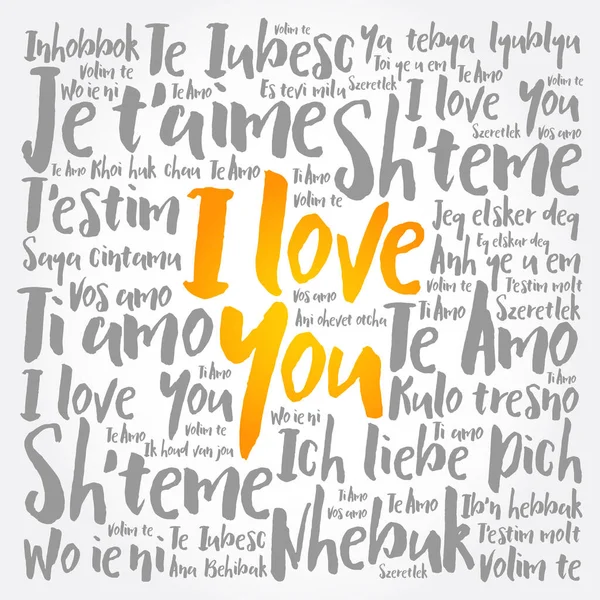 Inhobbok Te Iubesc Volim te Ya tebya lyublyu
Volim te Toi ye u em Te Amo Volim te
Wo ie ni Te Amo Es tevi milu Szeretlek I love You
Je t'aime Sh'teme Szeretlek Vos amo
Te Amo Khoi huk chau Te Amo Ti Amo
T'estim I love You Volim te Jeg elsker deg
Eg elskar deg
Saya cintamu Anh ye u em
Vos amo Vos amo Volim te T'estim molt
Ti amo Ani ohevet otcha Te Amo Ti Amo Szeretlek
I love You Ti Amo Kulo tresno Ti Amo
Volim te Wo ie ni
Te Amo Ik houd van jou Ich liebe Dich Ti amo
Sh'teme Ti Amo Te Amo Ib'n hebbak
Volim te Te Iubesc Vos amo Nhebuk T'estim molt
Wo ie ni Ana Behibak Szeretlek Volim te